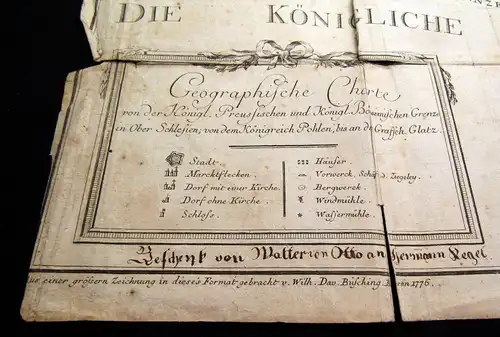 DIE KÖNIGLICHE
Geographische Charte
von der Königl. Preussischen und Königl. Böhmischen Grenze
in Ober Schlesien; von dem Königreich Pohlen, bis an de Grafsch. Glatz.
Stadt. Häuser.
Marcktflecken. Vorwerck, Schäf. od. Ziegeley.
Dorf mit einer Kirche. Bergwerck.
Dorf ohne Kirche. Windmühle.
Schloss. Wassermühle.
Geschenk von Otto an Hermann
einer grössern Zeichnung in dieses Format gebracht v. Wilh. Dav. Büsching. Berlin 1776.